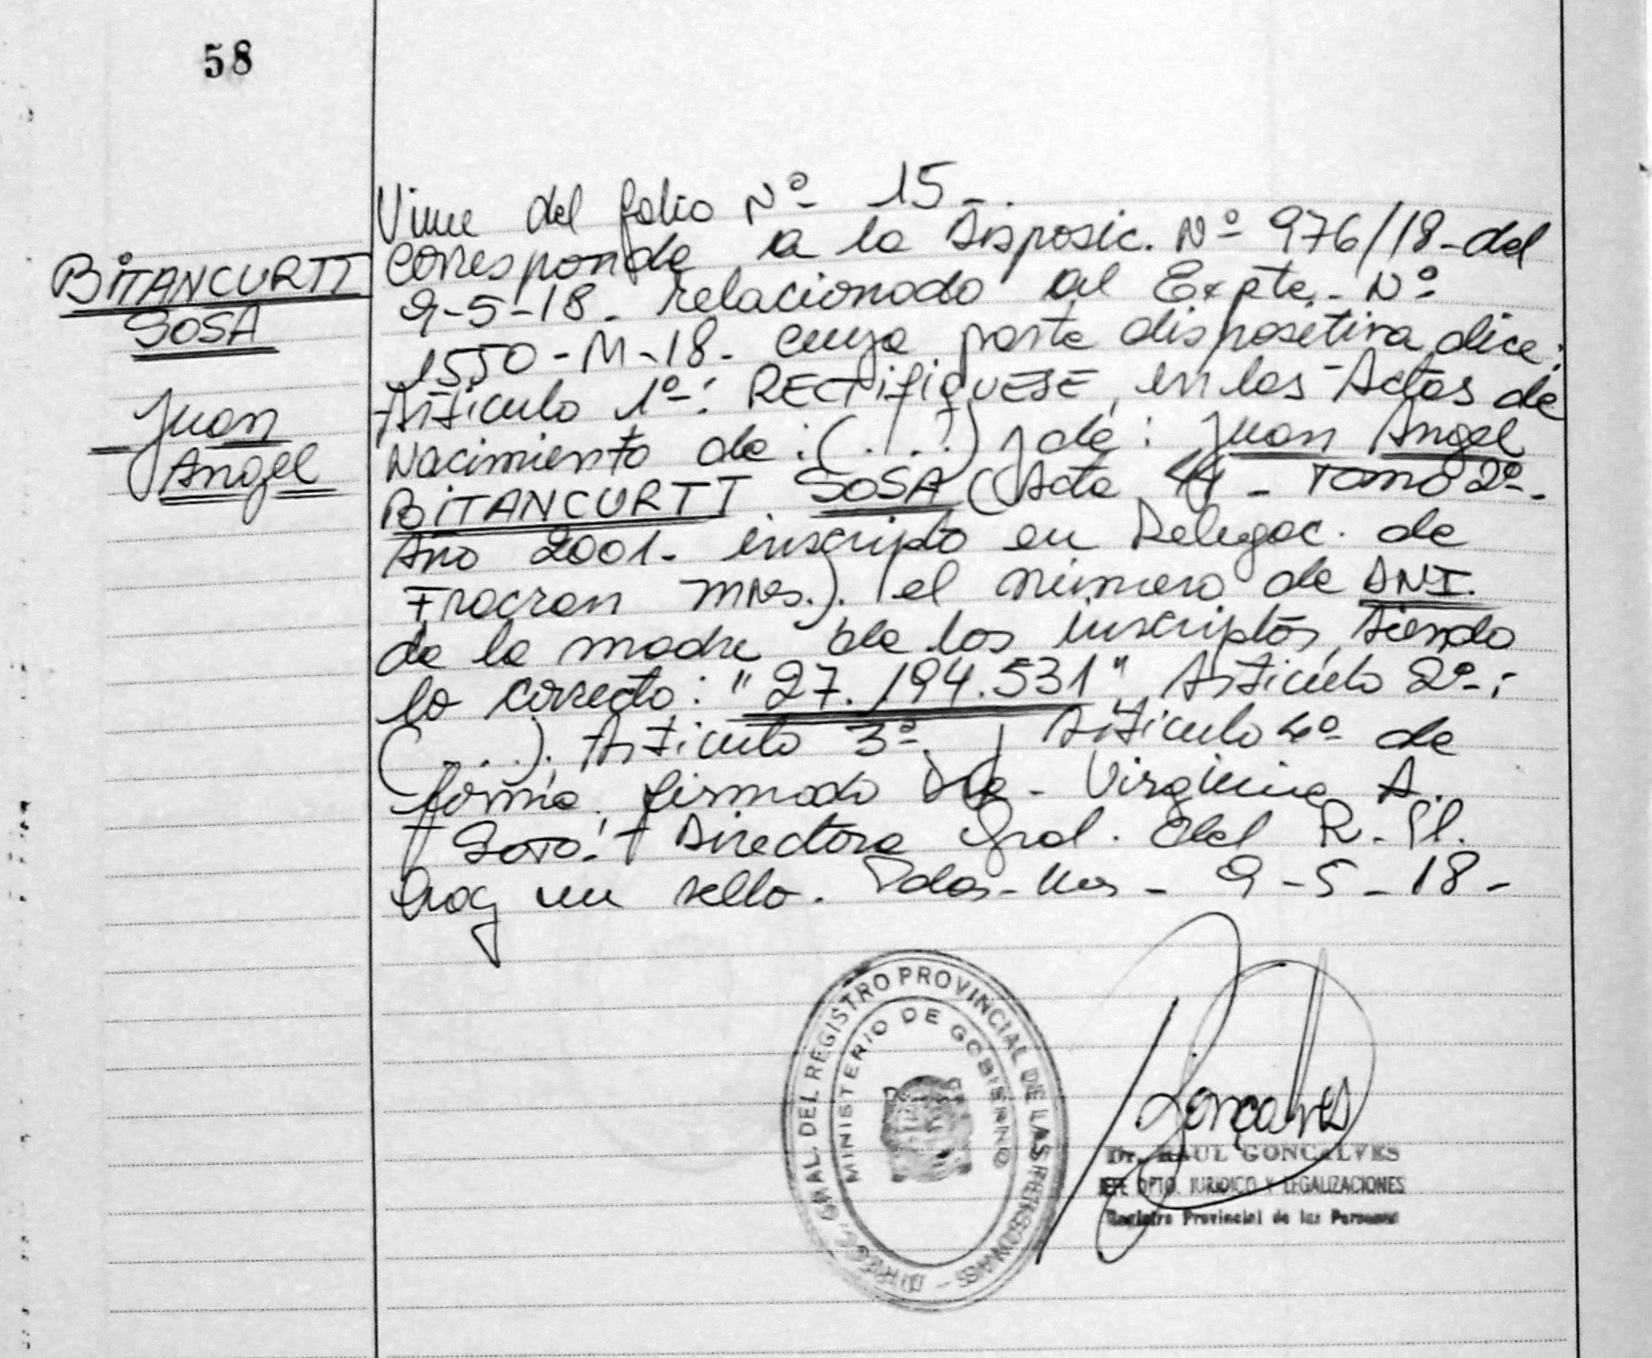 58
BITANCURTT
SOSA
Juan
Angel
Viene del folio Nº 15-.
corresponde a la Disposic. Nº 976/18-del
9-5-18. relacionado al Expte.- Nº
1550-M-18- cuya parte dispositiva dice:
Artículo 1º-: RECTIFIQUESE, en las Actas de
Nacimiento de: (. . .) y de: Juan Angel
BITANCURTT SOSA (Acta 44 - Tomo 2º-.
Año 2001- inscripto en Delegac. de
Fracran Mnes.). el número de DNI.
de la madre de los inscriptos, siendo
lo correcto: "27.194.531" Artículo 2º-:
(. . .). Artículo 3º. y Artículo 4º de
forma. firmado Dra - Virginia A.
Soto.- Directora Gral. del R. P.
Hay un sello. Pdas-Mnes - 9-5-18-
DIREC. GRAL. DEL REGISTRO PROVINCIAL DE LAS PERSONAS -
MINISTERIO DE GOBIERNO
Gonçalves
Dr. RAUL GONCALVES
JEFE DPTO. JURIDICO Y LEGALIZACIONES
Registro Provincial de las Personas